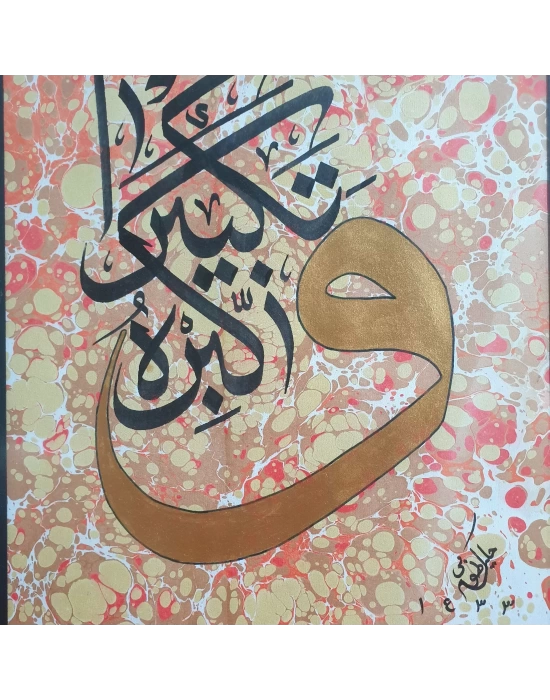 وَكَبِّرْهُ
تَكْبِيرًا
١٤٣٣